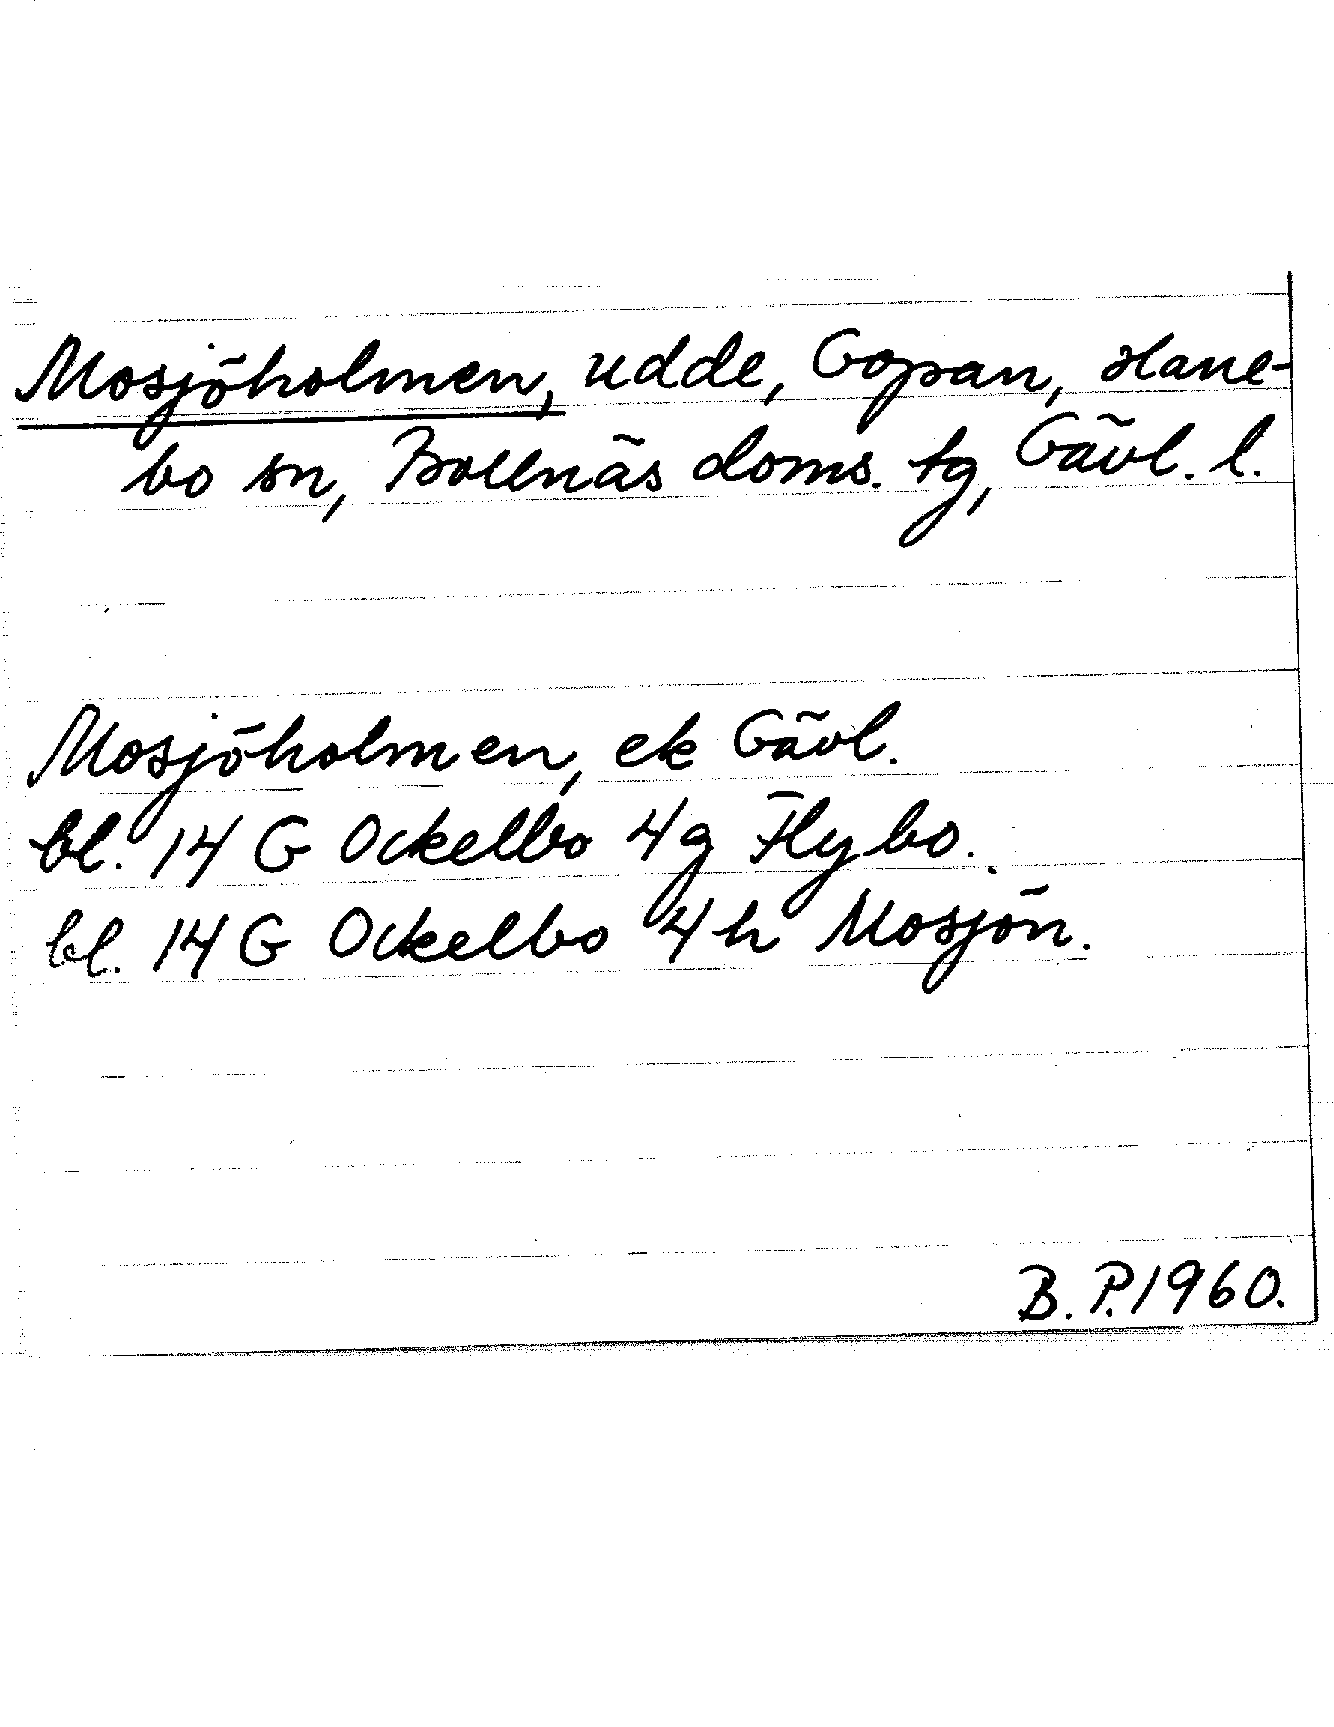 Mosjöholmen, udde, Gopan, Hane-
bo sn, Bollnäs doms. tg, Gävl. l.
Mosjöholmen, ek Gävl.
bl. 14 G Ockelbo 4g Flybo.
bl. 14 G Ockelbo 4h Mosjön.
B. P. 1960.